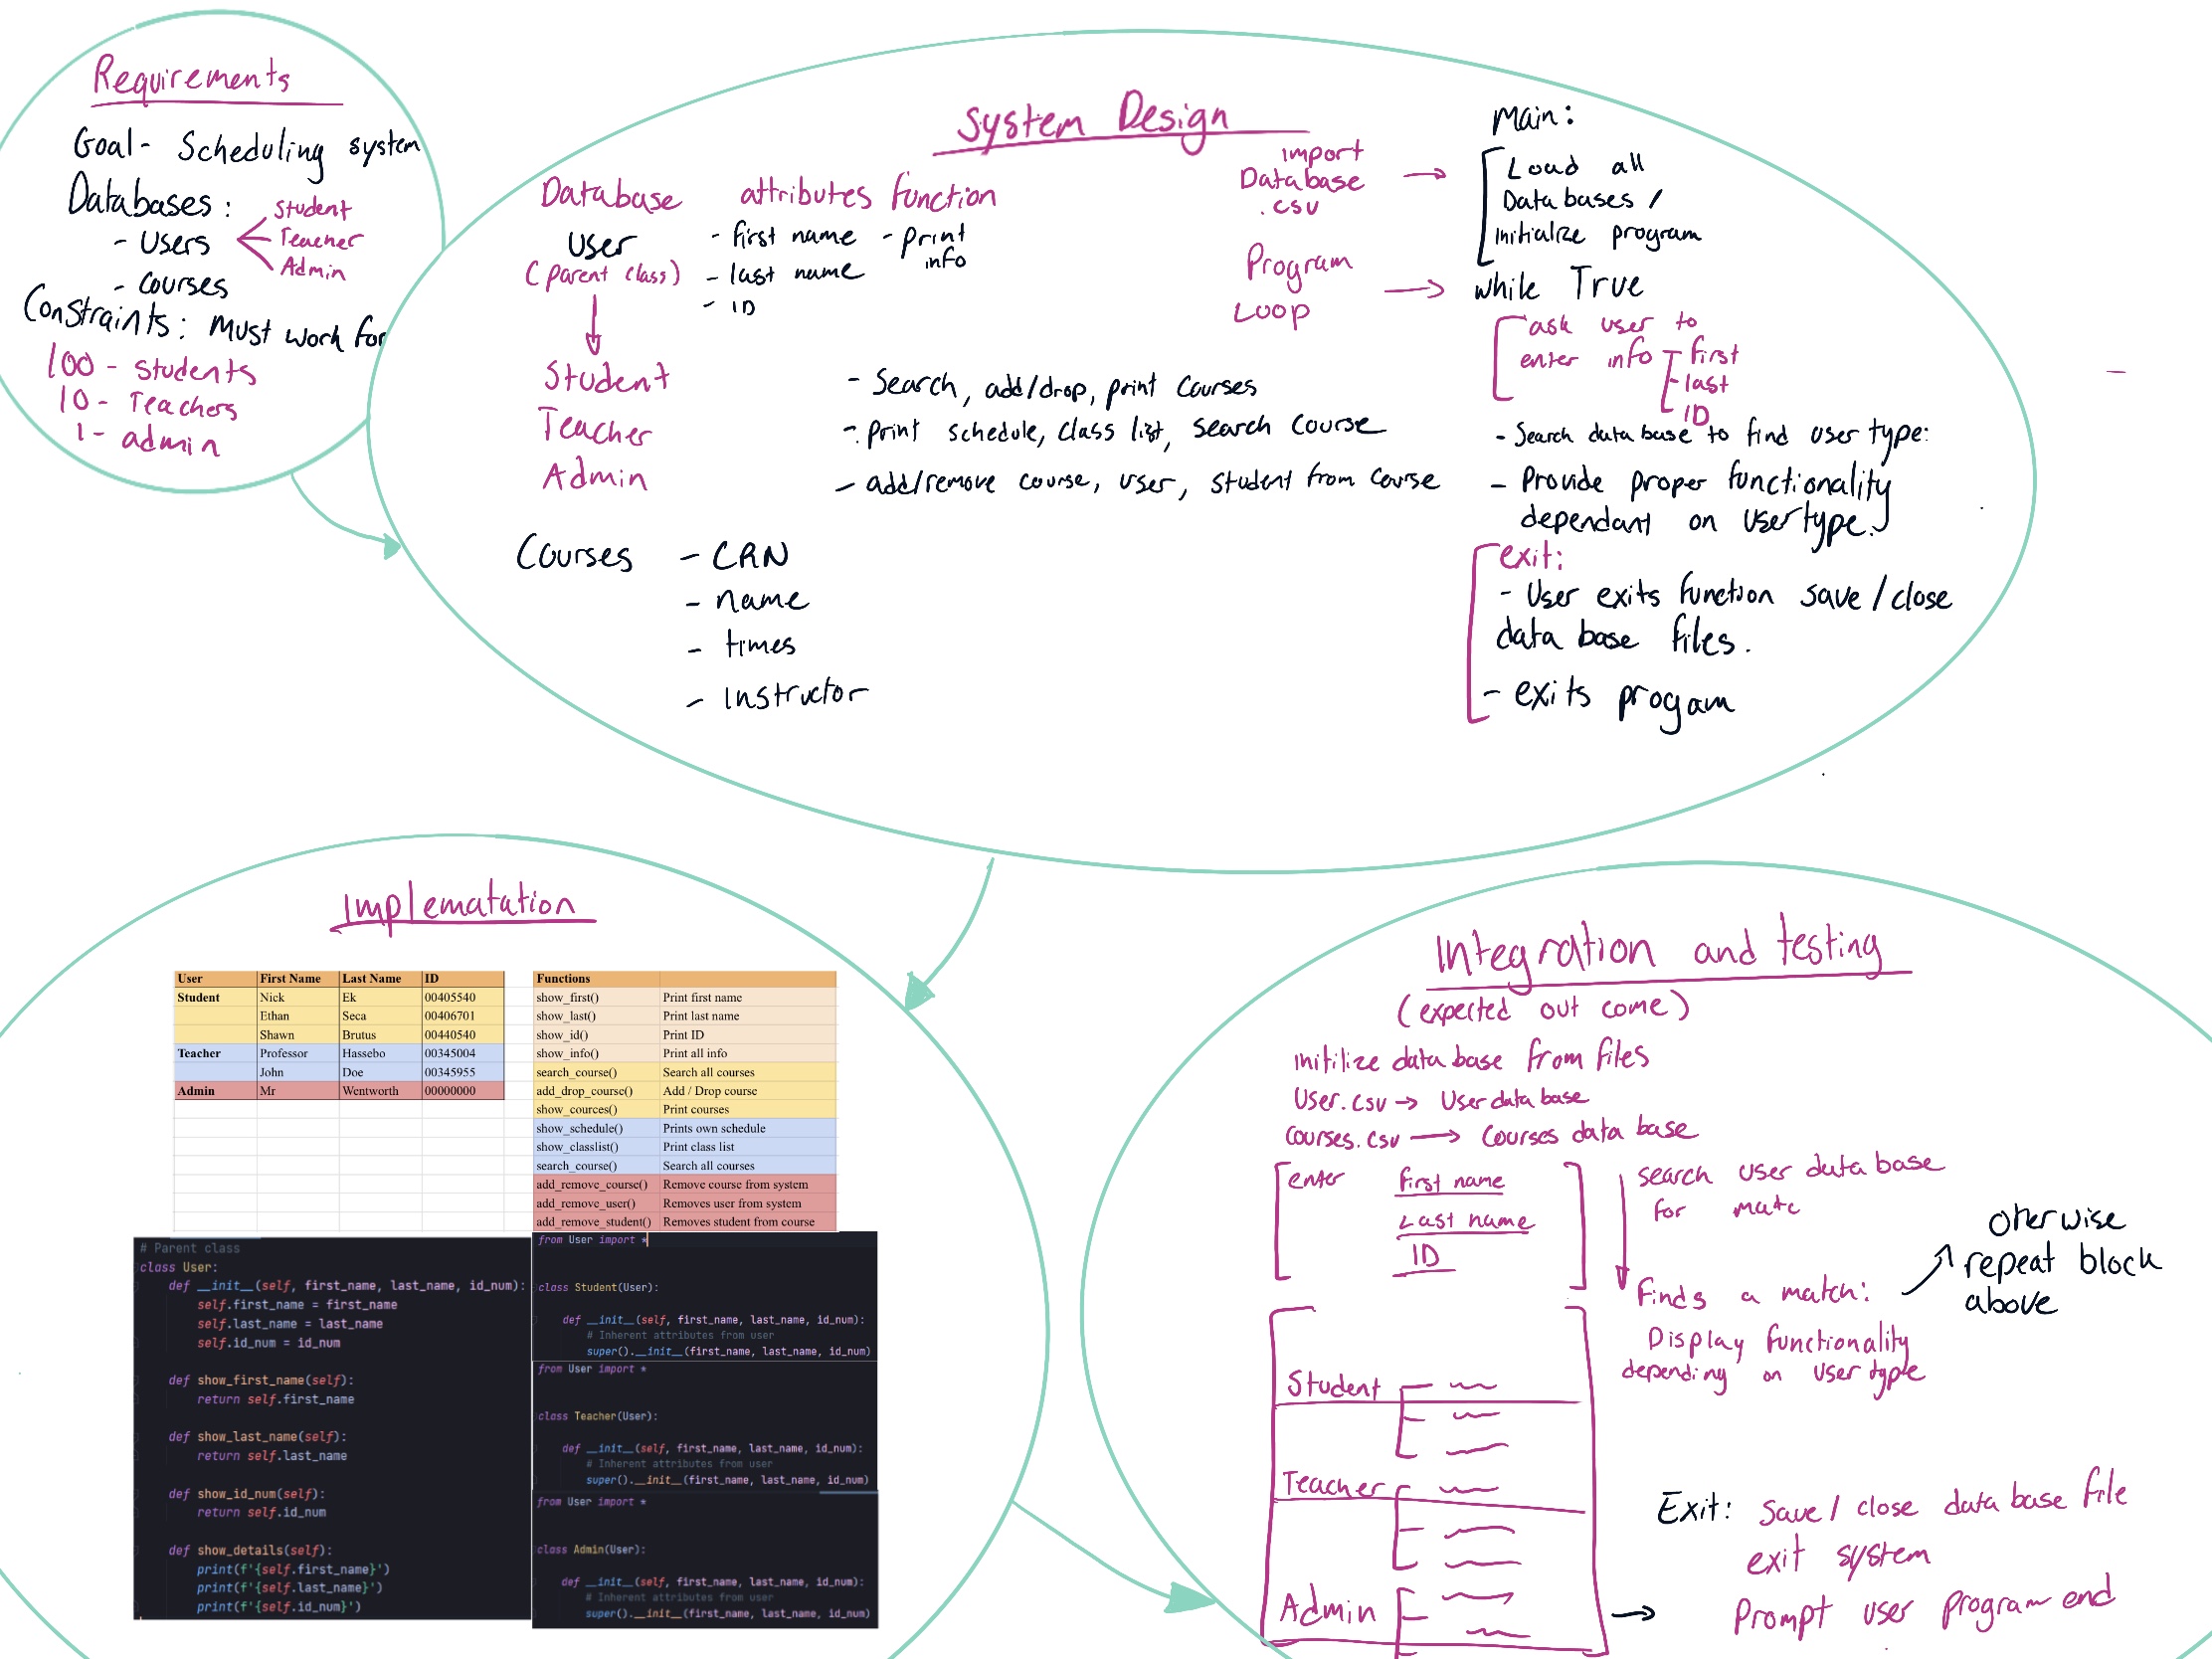 Requirements
Goal- Scheduling system
Databases:
- Users
Student
Teacher
Admin
- Courses
Constraints: Must work for
100 - Students
10 - Teachers
1 - admin
System Design
Database attributes function
User
(parent class)
- first name
- last name
- ID
- print
info
Student
- Search, add/drop, print courses
Teacher
- print schedule, class list, search course
Admin
- add/remove course, user, student from course
Courses
- CRN
- name
- times
- Instructor
import
Database
.csv
Main:
Load all
Databases /
initialize program
Program
Loop
while True
ask user to
enter info
- first
- last
ID
- Search data base to find user type:
- Provide proper functionality
dependant on usertype.
exit:
- User exits function save/close
data base files.
- exits progam
Implematation
User First Name Last Name ID
Student Nick Ek 00405540
Ethan Seca 00406701
Shawn Brutus 00440540
Teacher Professor Hassebo 00345004
John Doe 00345955
Admin Mr Wentworth 00000000
Functions
show_first() Print first name
show_last() Print last name
show_id() Print ID
show_info() Print all info
search_course() Search all courses
add_drop_course() Add / Drop course
show_cources() Print courses
show_schedule() Prints own schedule
show_classlist() Print class list
search_course() Search all courses
add_remove_course() Remove course from system
add_remove_user() Removes user from system
add_remove_student() Removes student from course
# Parent class
class User:
def __init__(self, first_name, last_name, id_num):
self.first_name = first_name
self.last_name = last_name
self.id_num = id_num
def show_first_name(self):
return self.first_name
def show_last_name(self):
return self.last_name
def show_id_num(self):
return self.id_num
def show_details(self):
print(f'{self.first_name}')
print(f'{self.last_name}')
print(f'{self.id_num}')
from User import *
class Student(User):
def __init__(self, first_name, last_name, id_num):
# Inherent attributes from user
super().__init__(first_name, last_name, id_num)
from User import *
class Teacher(User):
def __init__(self, first_name, last_name, id_num):
# Inherent attributes from user
super().__init__(first_name, last_name, id_num)
from User import *
class Admin(User):
def __init__(self, first_name, last_name, id_num):
# Inherent attributes from user
super().__init__(first_name, last_name, id_num)
Integration and testing
(expected out come)
initilize data base from files
User.csv → User data base
courses.csv → Courses data base
enter
first name
Last name
ID
search user data base
for matc
Finds a match:
Display functionality
depending on user type
oterwise
repeat block
above
Student
Teacher
Admin
Exit: Save / close data base file
exit system
Prompt user program end